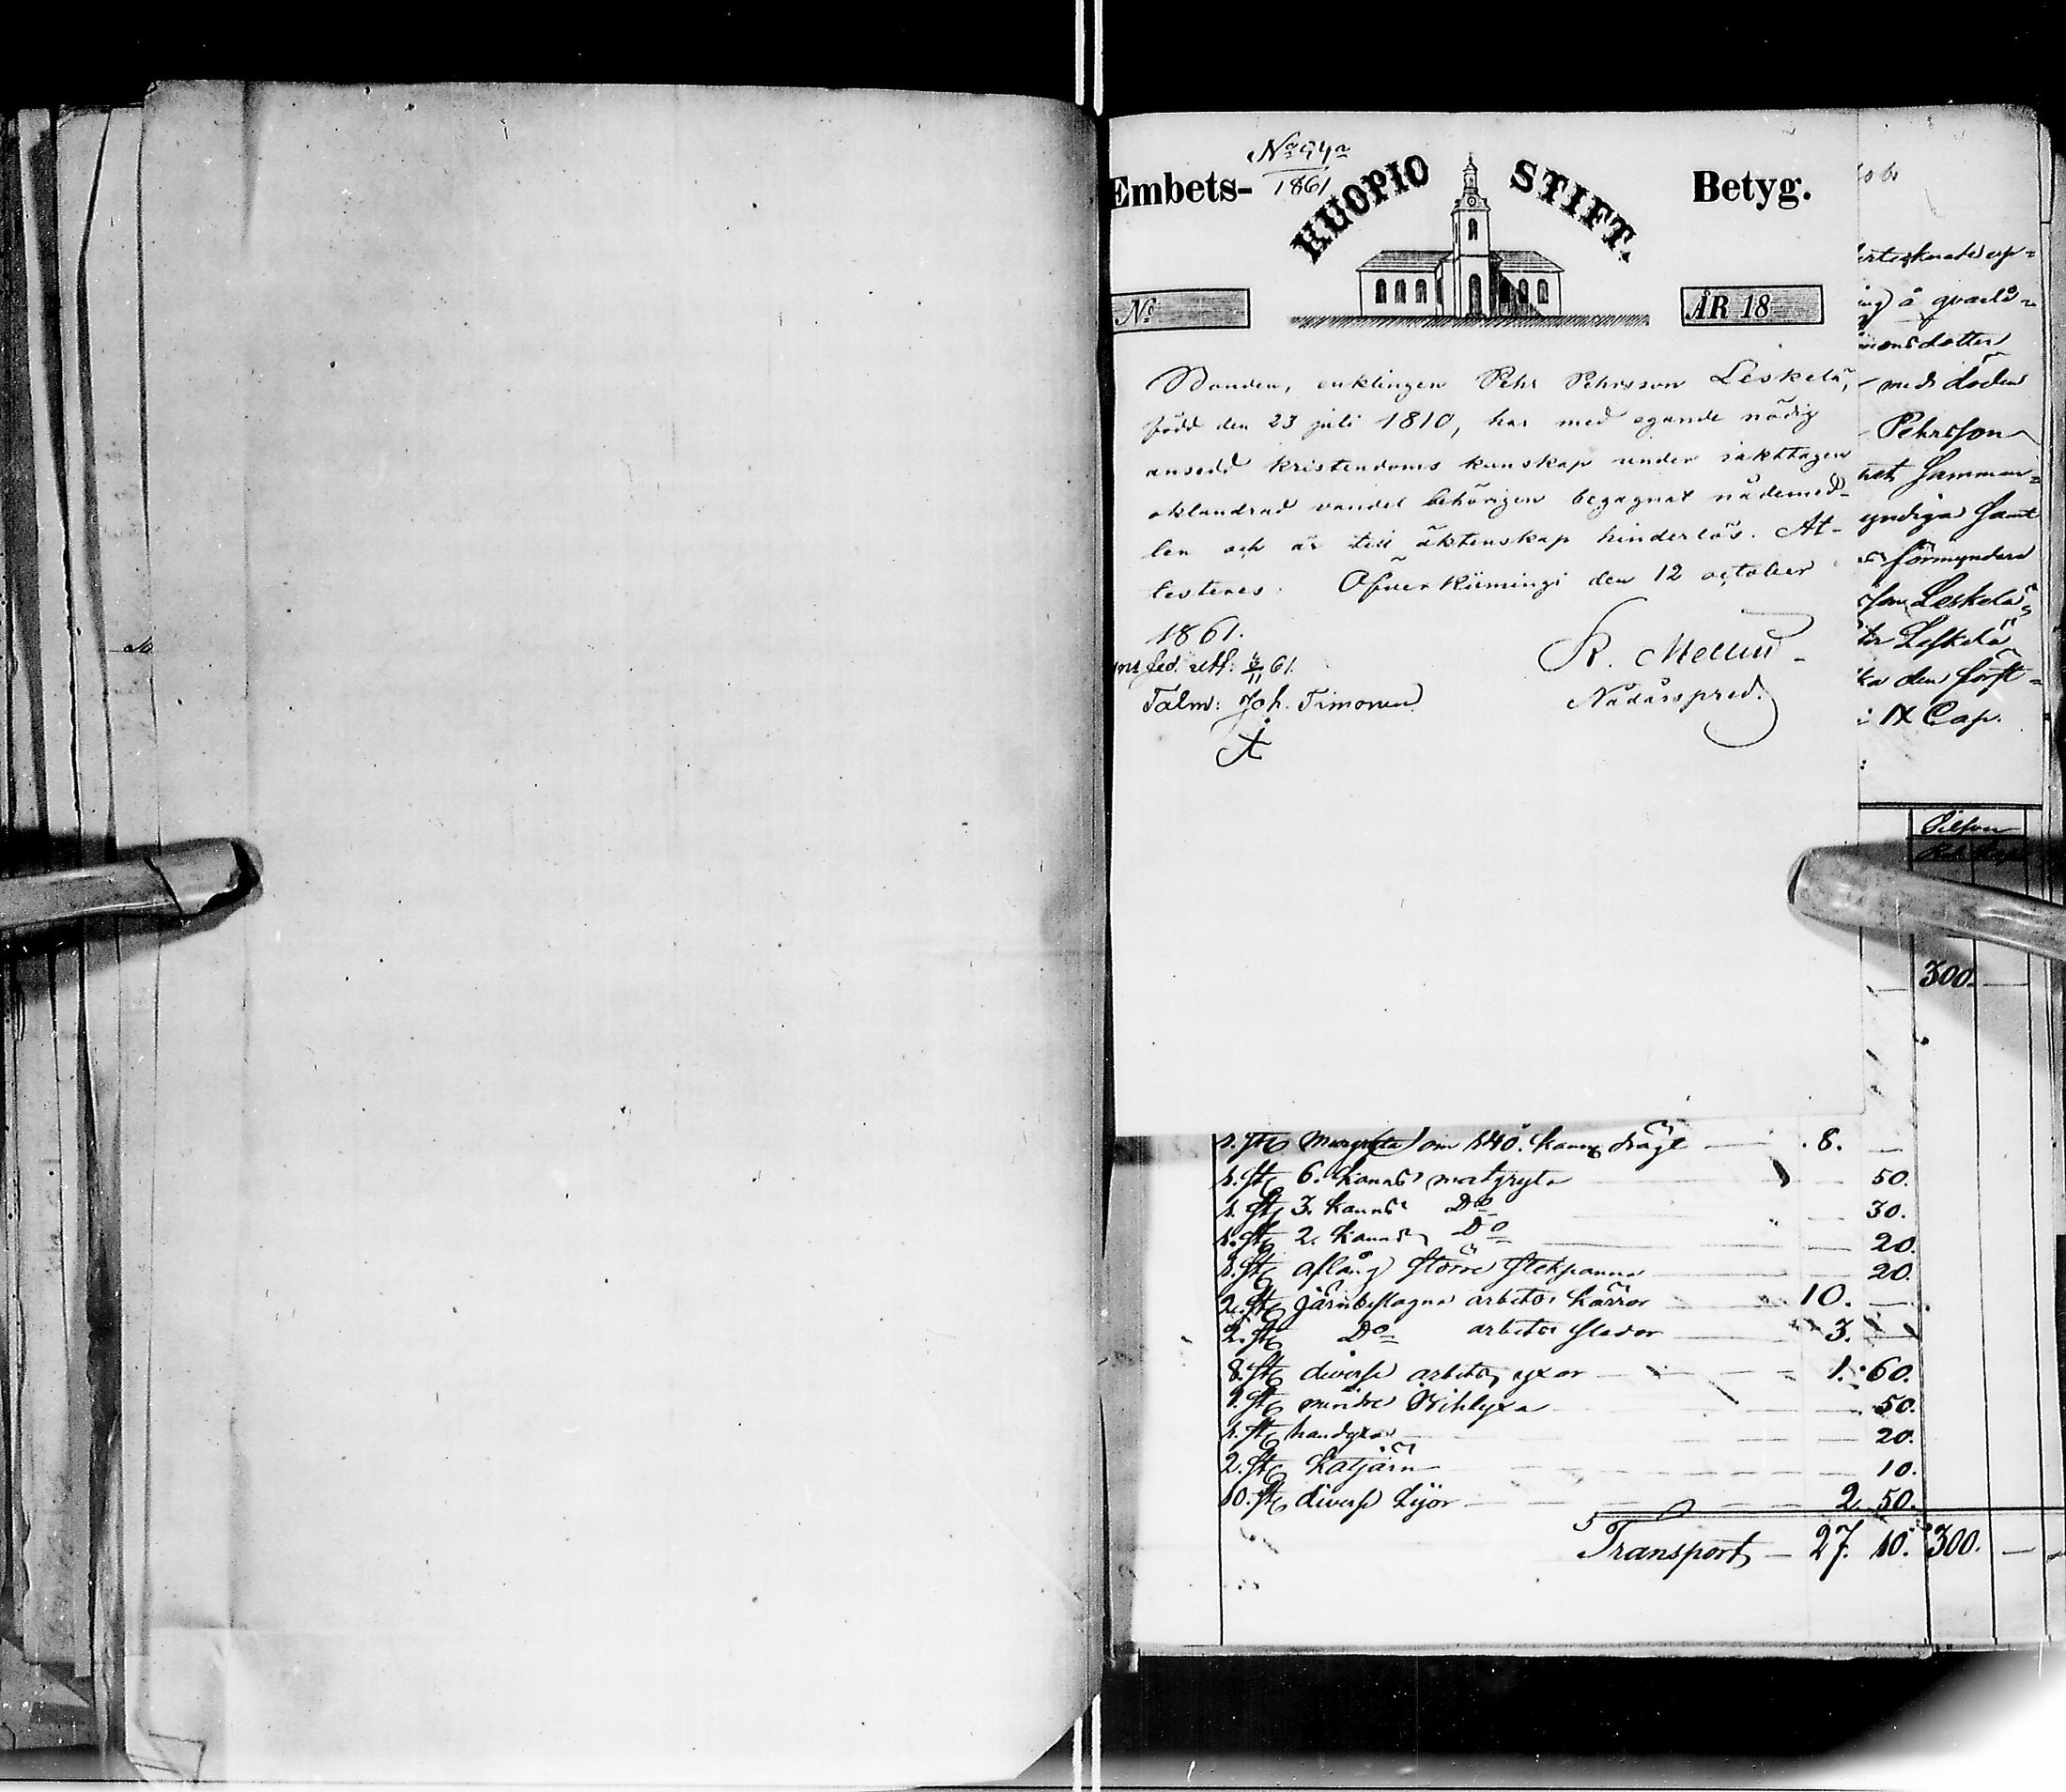 No 94a
1861
Embets- KUOPIO STIFT. Betyg.
No
ÅR 18
Bonden, enklingen Pehr Pehrsson Leskelä,
född den 23 juli 1810, har med egande nödig
ansedd kristendoms kunskap under iakttagen
oklandrad vandel behörigen begagnat nådemed-
len och är till äktenskap hinderlös. At-
testeras. Öfver Kiimingi den 12 october
1861.
K. Mellin
Nådårspred.
Talm: Joh. Timonen
å qvarlå-
monsdotter
med döden
Pehrsson
Samman-
yndiga samt
förmyndare
Leskelä
Leskelä
den först-
i IX Cap.
Silfver
300. —
1. st. om 140. kann drägt — 8. —
1. st. 6. kanns matgryta — 50.
1. st. 3. kanns Do — 30.
1. st. 2. kanns Do — 20.
1. st. aflång större stekpanna — 20.
2. st. järnbeslagne arbets kärror 10. —
2. st. Do arbets slädor 3. —
8. st. diverse arbets yxor 1. 60.
1. st. mindre — 50.
1. st. handyxa — 20.
2. st. — 10.
10. st. diverse Lijor 2. 50.
Transport — 27. 10. 300. —